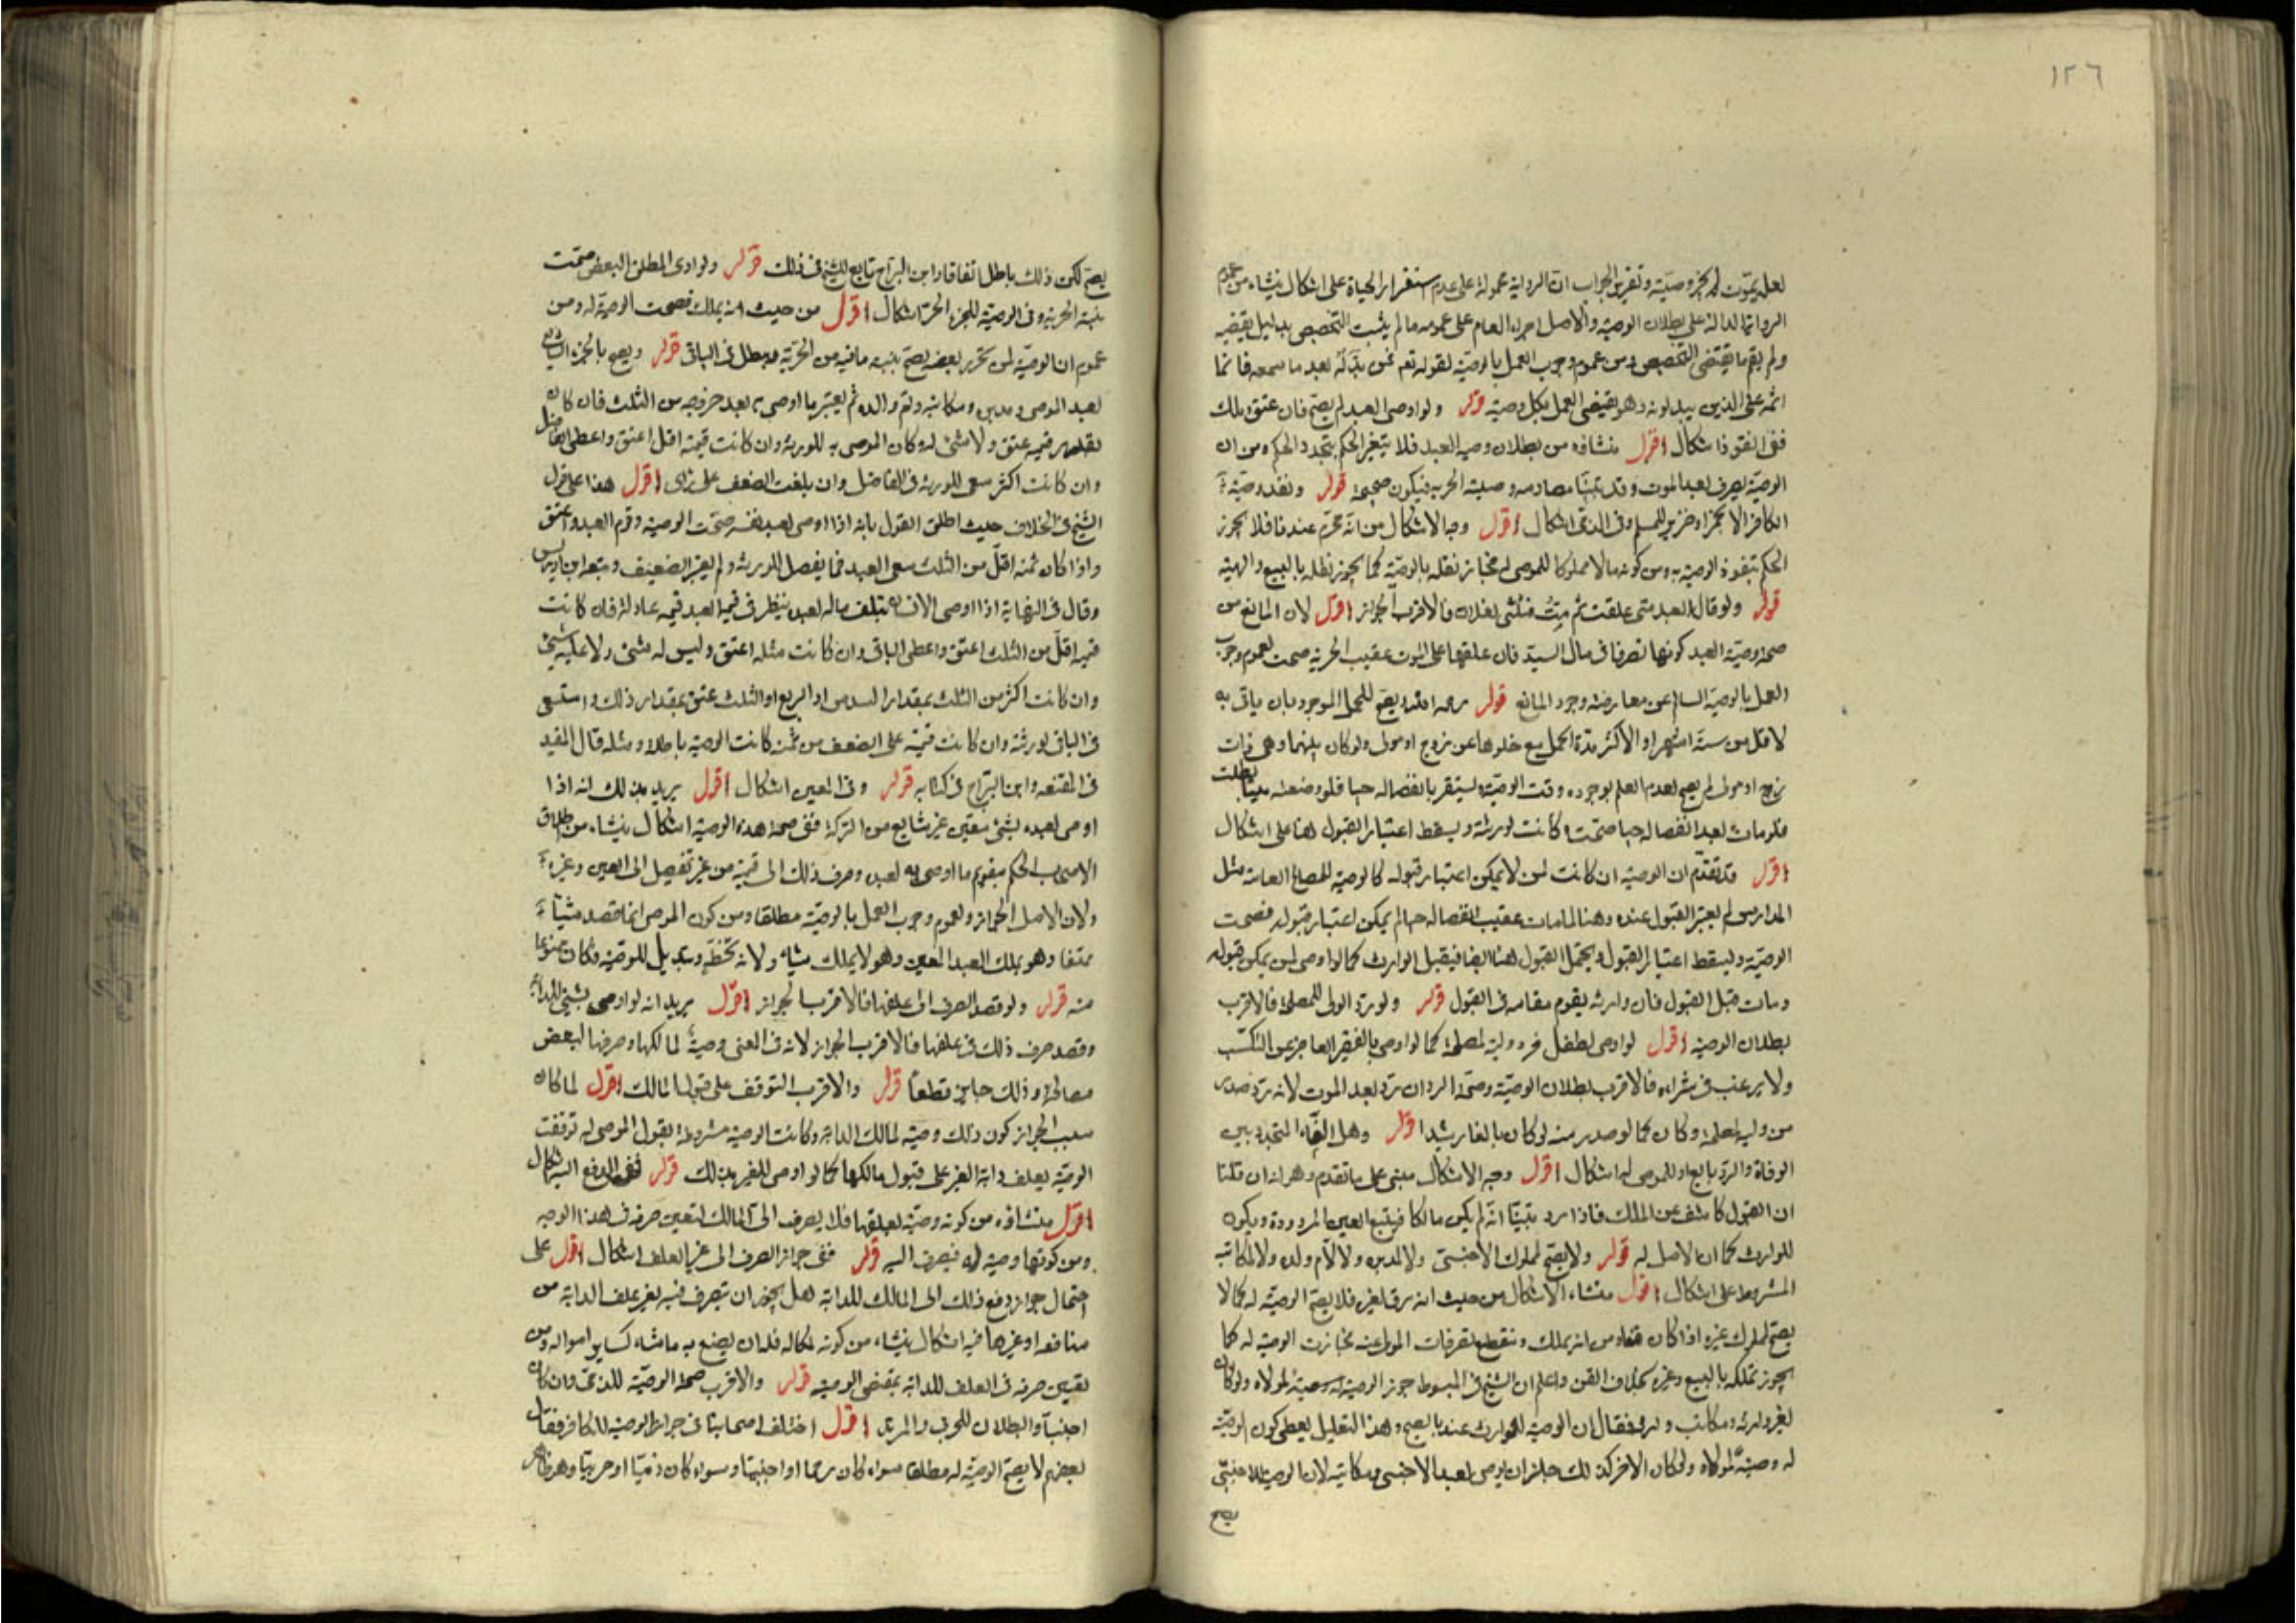 ١٢٦
لعله يموت لم يجز وصيته وتقرير الجواب ان الرواية محمولة على عدم استقرار الحياة على اشكال ينشاء من عموم
الدالة على بطلان الوصية والاصل اجراء العام على عمومه ما لم يثبت التخصيص بدليل يقتضيه
ولم يقم ما يقتضى التخصيص ومن عموم وجوب العمل بالوصية لقوله تعم فمن بدله بعد ما سمعه فانما
اثمه على الذين يبدلونه وهو يقتضى العمل بكل وصية قوله ولو اوصى العبد لم يصح فان عتق وملك
ففى النفوذ اشكال اقول منشاؤه من بطلان وصية العبد فلا يتغير الحكم بتجدد الحكم ومن ان
الوصية تصرف بعد الموت وقد تبينا مصادمه وصيته الحرية فيكون صحيحة قوله ونفذ وصية
الكافر الا بخمر او خنزير للمسلم وفى الذمى اشكال اقول وجه الاشكال من انه محرم عندنا فلا يجوز
الحكم بنفوذ الوصية به ومن كونه مالا مملوكا للموصى له فجاز نقله بالوصية كما يجوز نقله بالبيع والهبة
قوله ولو قال العبد متى عتقت ثم مت فثلثى لفلان فالاقرب الجواز اقول لان المانع من
صحة وصية العبد كونها تصرفا فى مال السيد فان علقها على الموت عقيب الحرية صحت لعموم وجوب
العمل بالوصية السالم عن معارضة وجود المانع قوله رحمه الله ويصح للحمل الموجود بان ياتى به
لاقل من ستة اشهر او الاكثر مدة الحمل مع خلوها عن زوج او مولى ولو كان بينهما وهى ذات
زوج او مولى لم يصح لعدم العلم بوجوده وقت الوصية ويستقر بانفصاله حيا فلو وضعته ميتا بطلت
ولو مات بعد انفصاله حيا صحت وكانت لورثته ويسقط اعتبار القبول هنا على اشكال
اقول قد تقدم ان الوصية ان كانت لمن لا يمكن اعتبار قبوله كالوصية للمصالح العامة مثل
المدارس لم يعتبر القبول عنده وهنا لما مات عقيب انفصاله حيا لم يمكن اعتبار قبوله فصحت
الوصية ويسقط اعتبار القبول ويحتمل القبول هنا ايضا فيقبل الوارث كما لو اوصى لمن يمكن قبوله
ومات قبل القبول فان وارثه يقوم مقامه فى القبول قوله ولو رد الولى للمصلحة فالاقرب
بطلان الوصية اقول لو اوصى لطفل فرد وليه لمصلحة كما لو اوصى بالفقير العاجز عن التكسب
ولا يرغب فى شرائه فالاقرب بطلان الوصية وصحة الرد ان رد بعد الموت لانه رد صدر
من وليه لمصلحة وكان كما لو صدر منه لو كان بالغا رشيدا قوله وهل النماء المتجدد بين
الوفاة والرد تابع او للموصى له اشكال اقول وجه الاشكال مبنى على ما تقدم وهو انه ان قلنا
ان القبول كاشف عن الملك فاذا رد تبينا انه لم يكن مالكا فيتبع العين المردودة ويكون
للوارث كما ان الاصل له قوله ولا يصح لمملوك الاجنبى ولا لمدبره ولا لام ولده ولا لمكاتبه
المشروط على اشكال اقول منشاء الاشكال من حيث انه رق لغيره فلا يصح الوصية له كما لا
يصح لمملوك غيره اذا كان قنا ومن انه يملك وتنقطع تصرفات المولى عنه فجازت الوصية له كما
يجوز تملكه بالبيع وغيره بخلاف القن واعلم ان الشيخ فى المبسوط جوز الوصية له وصية لمولاه ولو كان
لغير وارثه ومكاتب وارثه فقال ان الوصية للوارث عندنا يصح وهذا التعليل يعطى كون الوصية
له وصية لمولاه ولو كان الامر كذلك جاز ان يوصى لعبد الاجنبى ومكاتبه لان الوصية للاجنبى
يصح
يصح لكن ذلك باطل اتفاقا وابن البراج تابع للشيخ فى ذلك قوله ولو ادى المطلق البعض صحت
بنسبة الحرية وفى الوصية للجزء الحر اشكال اقول من حيث انه يملك فصحت الوصية له ومن
عموم ان الوصية لمن تحرر بعضه يصح بنسبة ما فيه من الحرية ويبطل فى الباقى قوله ويصح بالجزء الشايع
لعبد الموصى ومدبره ومكاتبه وام والده ثم يعتبر ما اوصى به بعد خروجه من الثلث فان كان
بقدر قيمته عتق ولا شئ له وكان الموصى به للورثة وان كانت قيمته اقل اعتق واعطى الفاضل
وان كانت اكثر سعى للورثة فى الفاضل وان بلغت الضعف على راى اقول هذا على قول
الشيخ فى الخلاف حيث اطلق القول بانه اذا اوصى لعبد نفسه صحت الوصية وقوم العبد واعتق
واذا كان ثمنه اقل من الثلث سعى العبد فيما يفضل للورثة ولم يعتبر الضعيف وتبعه ابن ادريس
وقال فى النهاية اذا اوصى الانسان بثلث ماله لعبده ينظر فى قيمة العبد قيمة عادلة فان كانت
قيمته اقل من الثلث اعتق واعطى الباقى وان كانت مثله اعتق وليس له شئ ولا عليه شئ
وان كانت اكثر من الثلث بمقدار السدس او الربع او الثلث عتق بمقدار ذلك واستسعى
فى الباقى لورثته وان كانت قيمته على الضعف من ثمنه كانت الوصية باطلة ومثله قال المفيد
فى المقنعه وابن البراج فى كتابه قوله وفى المعين اشكال اقول يريد بذلك انه اذا
اوصى لعبده بشئ معين غير شايع من التركة ففى صحة هذه الوصية اشكال ينشاء من اطلاق
الاصحاب الحكم بتقويم ما اوصى به لعبده وصرف ذلك الى قيمته من غير تفصيل الى المعين وغيره
ولان الاصل الجواز ولعموم وجوب العمل بالوصية مطلقا ومن كون الموصى انما قصد شيئا
وهو ملك العبد المعين وهو لا يملك شيئا ولانه تخطئه وتبديل للوصية فكان ممنوعا
منه قوله ولو قصد الصرف الى علفها فالاقرب الجواز اقول يريد انه لو اوصى بشئ للدابة
وقصد صرف ذلك فى علفها فالاقرب الجواز لانه فى المعنى وصية لمالكها وصرفها لبعض
مصالحه وذلك جايز قطعا قوله والاقرب التوقف على قبول المالك اقول لما كان
سبب الجواز كون ذلك وصية لمالك الدابة وكانت الوصية مشروطة بقبول الموصى له توقفت
الوصية بعلف دابة الغير على قبول مالكها كما لو اوصى للغير بذلك قوله ففى الدفع اليه اشكال
اقول منشاؤه من كونه وصية لعلفها فلا يصرف الى المالك لتعين صرفه فى هذا الوجه
ومن كونها وصية له فيصرف اليه قوله ففى جواز الصرف الى غير العلف اشكال اقول على
احتمال جواز دفع ذلك الى المالك للدابة هل يجوز ان يتصرف فيه بغير علف الدابة من
منافعه او غيرها فيه اشكال ينشاء من كونه لمالكه فله ان يصنع به ما شاء كساير امواله ومن
تعيين صرفه فى العلف للدابة بمقتضى الوصية قوله والاقرب صحة الوصية للذمى وان كان
اجنبيا والبطلان للحربى والمرتد اقول اختلف اصحابنا فى جواز الوصية للكافر فقال
بعضهم لا يصح الوصية له مطلقا سواء كان رحما او اجنبيا وسواء كان ذميا او حربيا وهو ظاهر